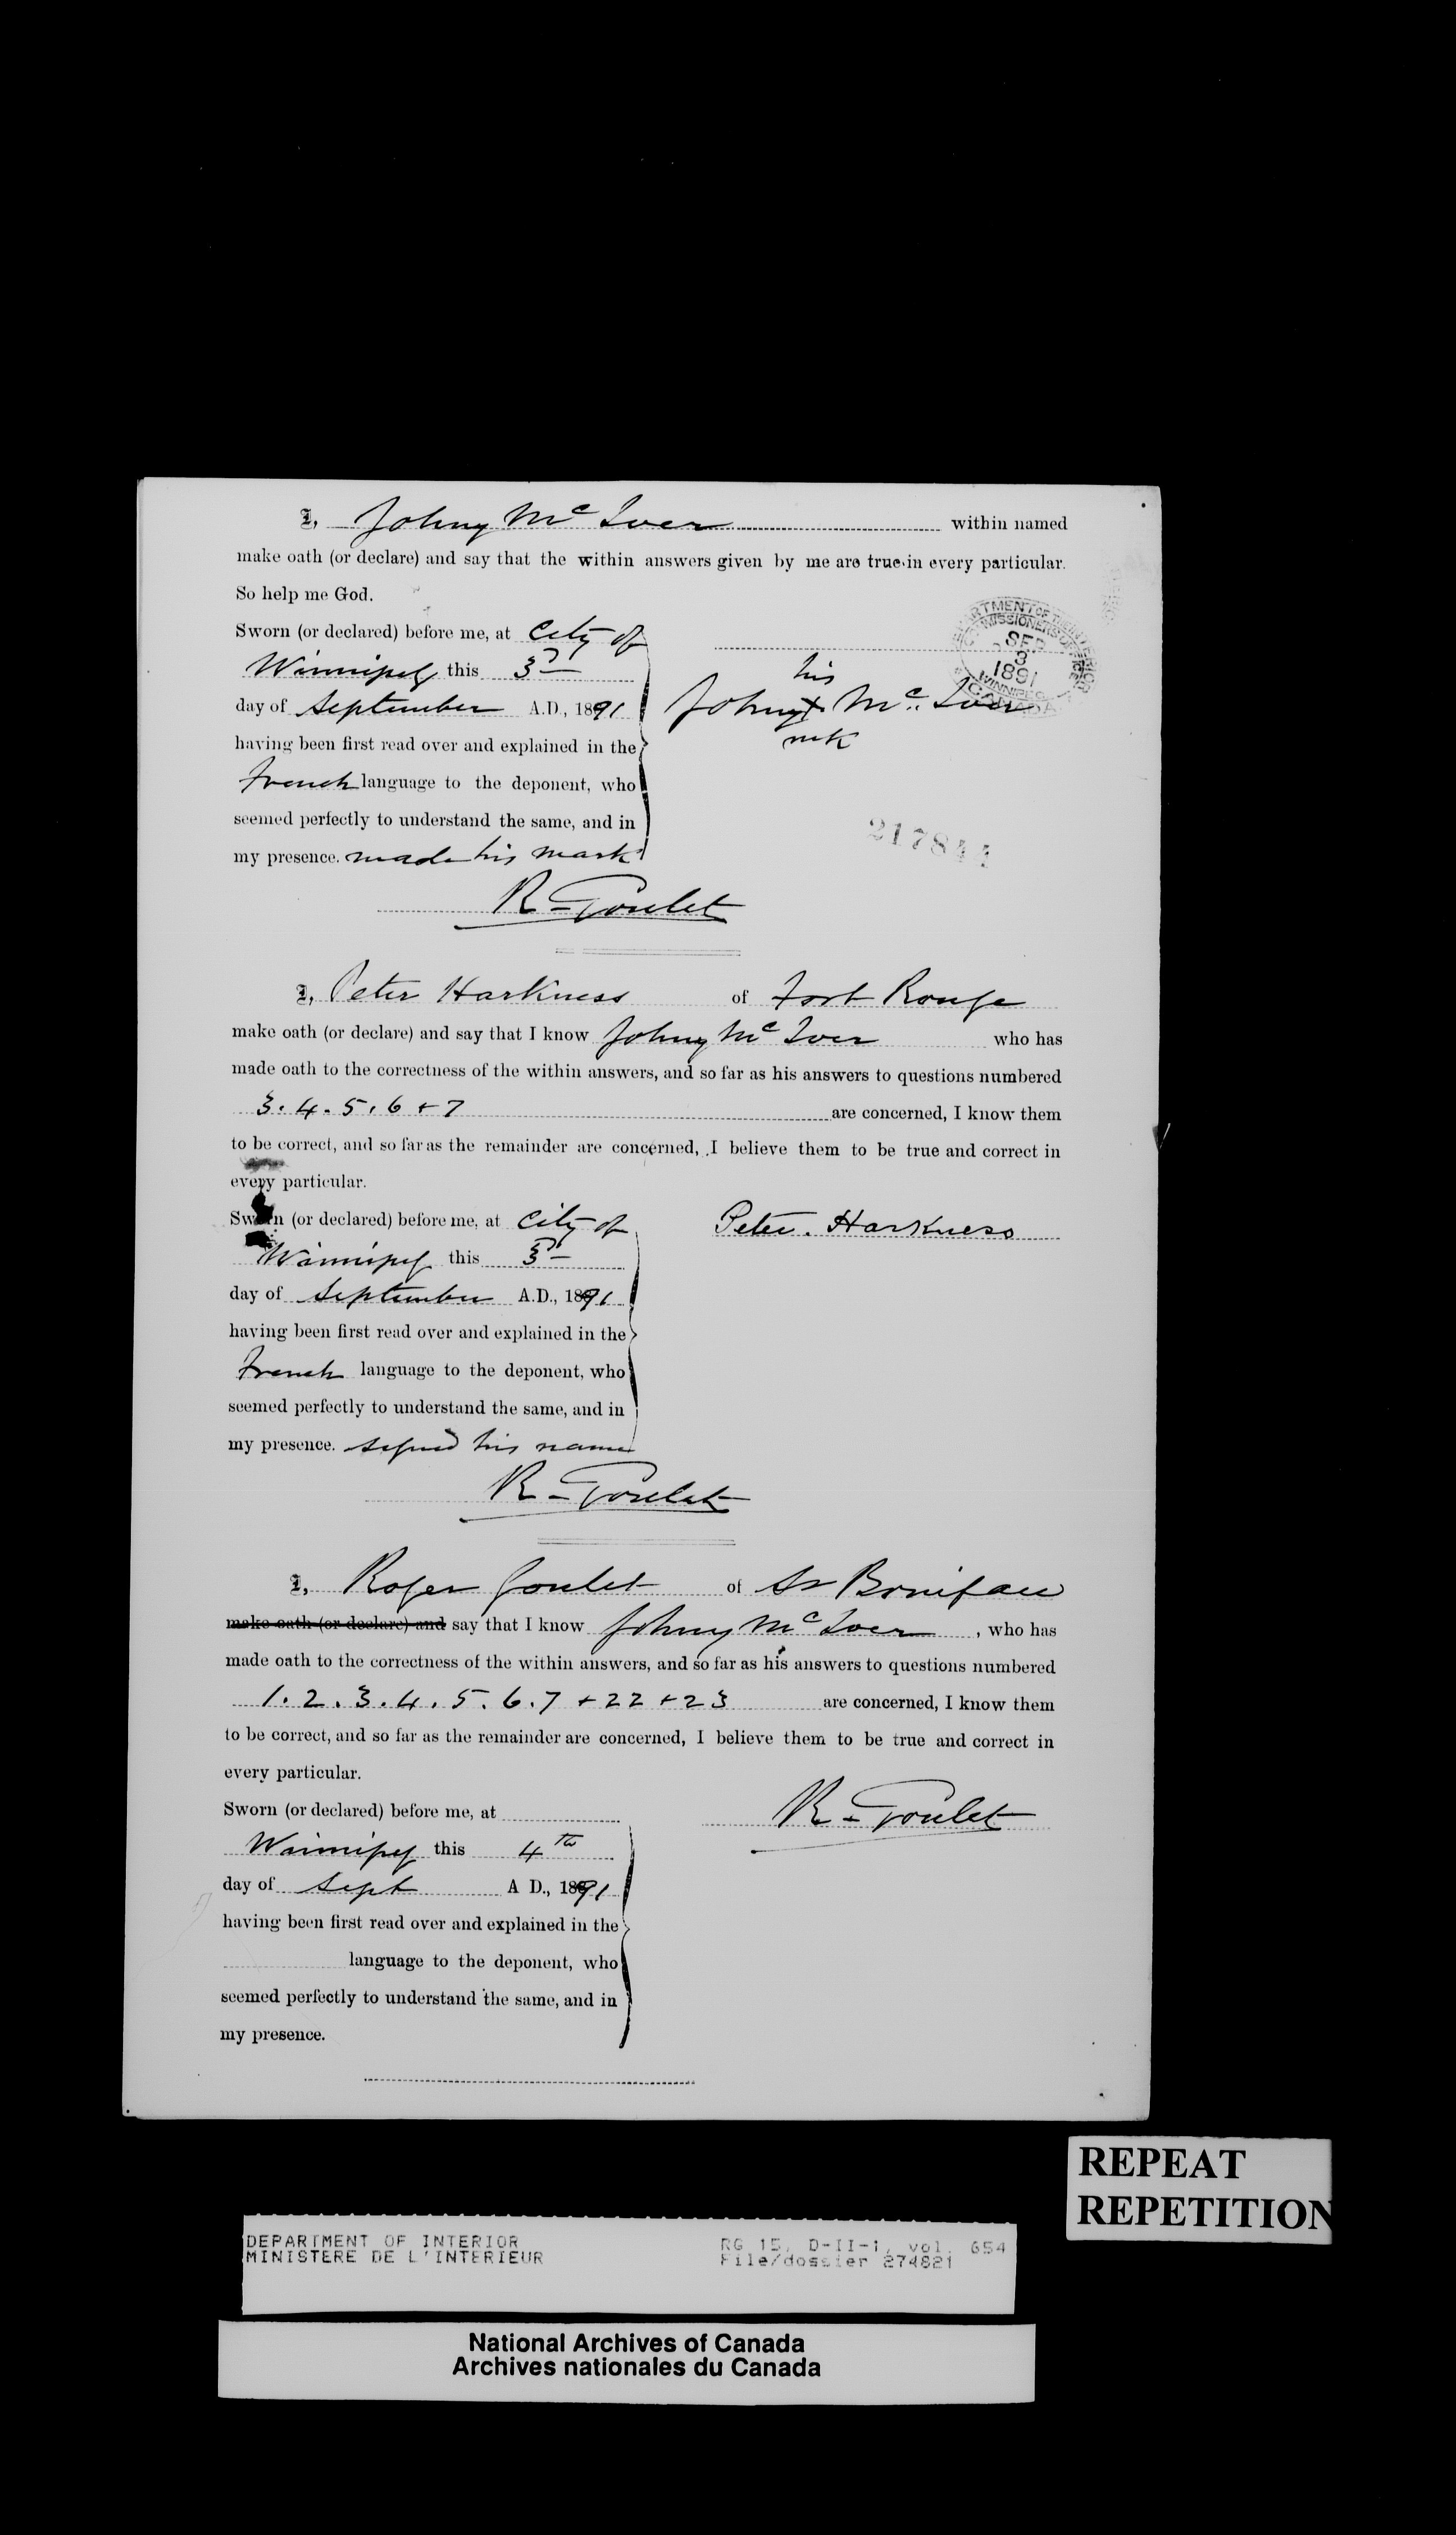 I, Johny Mc Iver within named
make oath (or declare) and say that the within answers given by me are true in every particular.
So help me God.
Sworn (or declared) before me, at City of
Winnipeg this 3d
day of September A.D., 1891
having been first read over and explained in the
French language to the deponent, who
seemed perfectly to understand the same, and in
my presence. made his mark
R. Goulet
DEPARTMENT OF THE INTERIOR
COMMISSIONERS OFFICE
SEP
3
1891
WINNIPEG
CANADA
his
Johny x Mc Iver
mk
217844
I, Peter Harkness of Fort Rouge
make oath (or declare) and say that I know Johny Mc Iver who has
made oath to the correctness of the within answers, and so far as his answers to questions numbered
3. 4. 5. 6 + 7 are concerned, I know them
to be correct, and so far as the remainder are concerned, I believe them to be true and correct in
every particular.
Sworn (or declared) before me, at City of
Winnipeg this 3d
day of September A.D., 1891
having been first read over and explained in the
French language to the deponent, who
seemed perfectly to understand the same, and in
my presence. signed his name
Peter. Harkness
R. Goulet
I, Roger Goulet of St Boniface
make oath (or declare) and say that I know Johny Mc Iver, who has
made oath to the correctness of the within answers, and so far as his answers to questions numbered
1. 2. 3. 4. 5. 6. 7 + 22 + 23 are concerned, I know them
to be correct, and so far as the remainder are concerned, I believe them to be true and correct in
every particular.
Sworn (or declared) before me, at
Winnipeg this 4th
day of Sept A D., 1891
having been first read over and explained in the
language to the deponent, who
seemed perfectly to understand the same, and in
my presence.
R. Goulet
REPEAT
REPETITION
DEPARTMENT OF INTERIOR
MINISTERE DE L'INTERIEUR
RG 15, D-II-1, vol. 654
File/dossier 274821
National Archives of Canada
Archives nationales du Canada